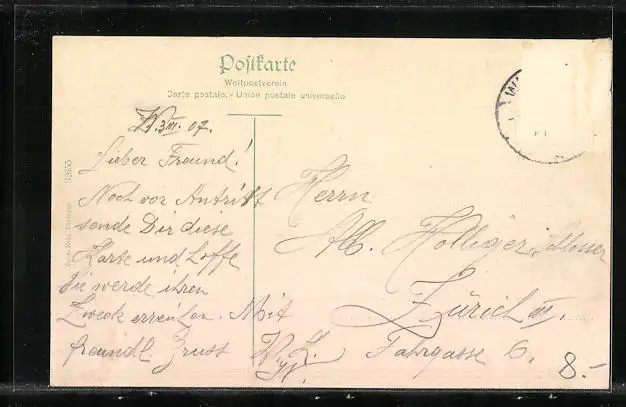 Postkarte
Weltpostverein
Carte postale. - Union postale universelle
W. 3.III. 07.
Lieber Freund!
Noch vor Antritt
sende Dir diese
Karte und hoffe
Sie werde ihren
Zweck erreichen. Mit
freundl. Gruss
Herrn
Alb. Holliger, Schlosser
Zürich III.
Fahrgasse 6.
8.-